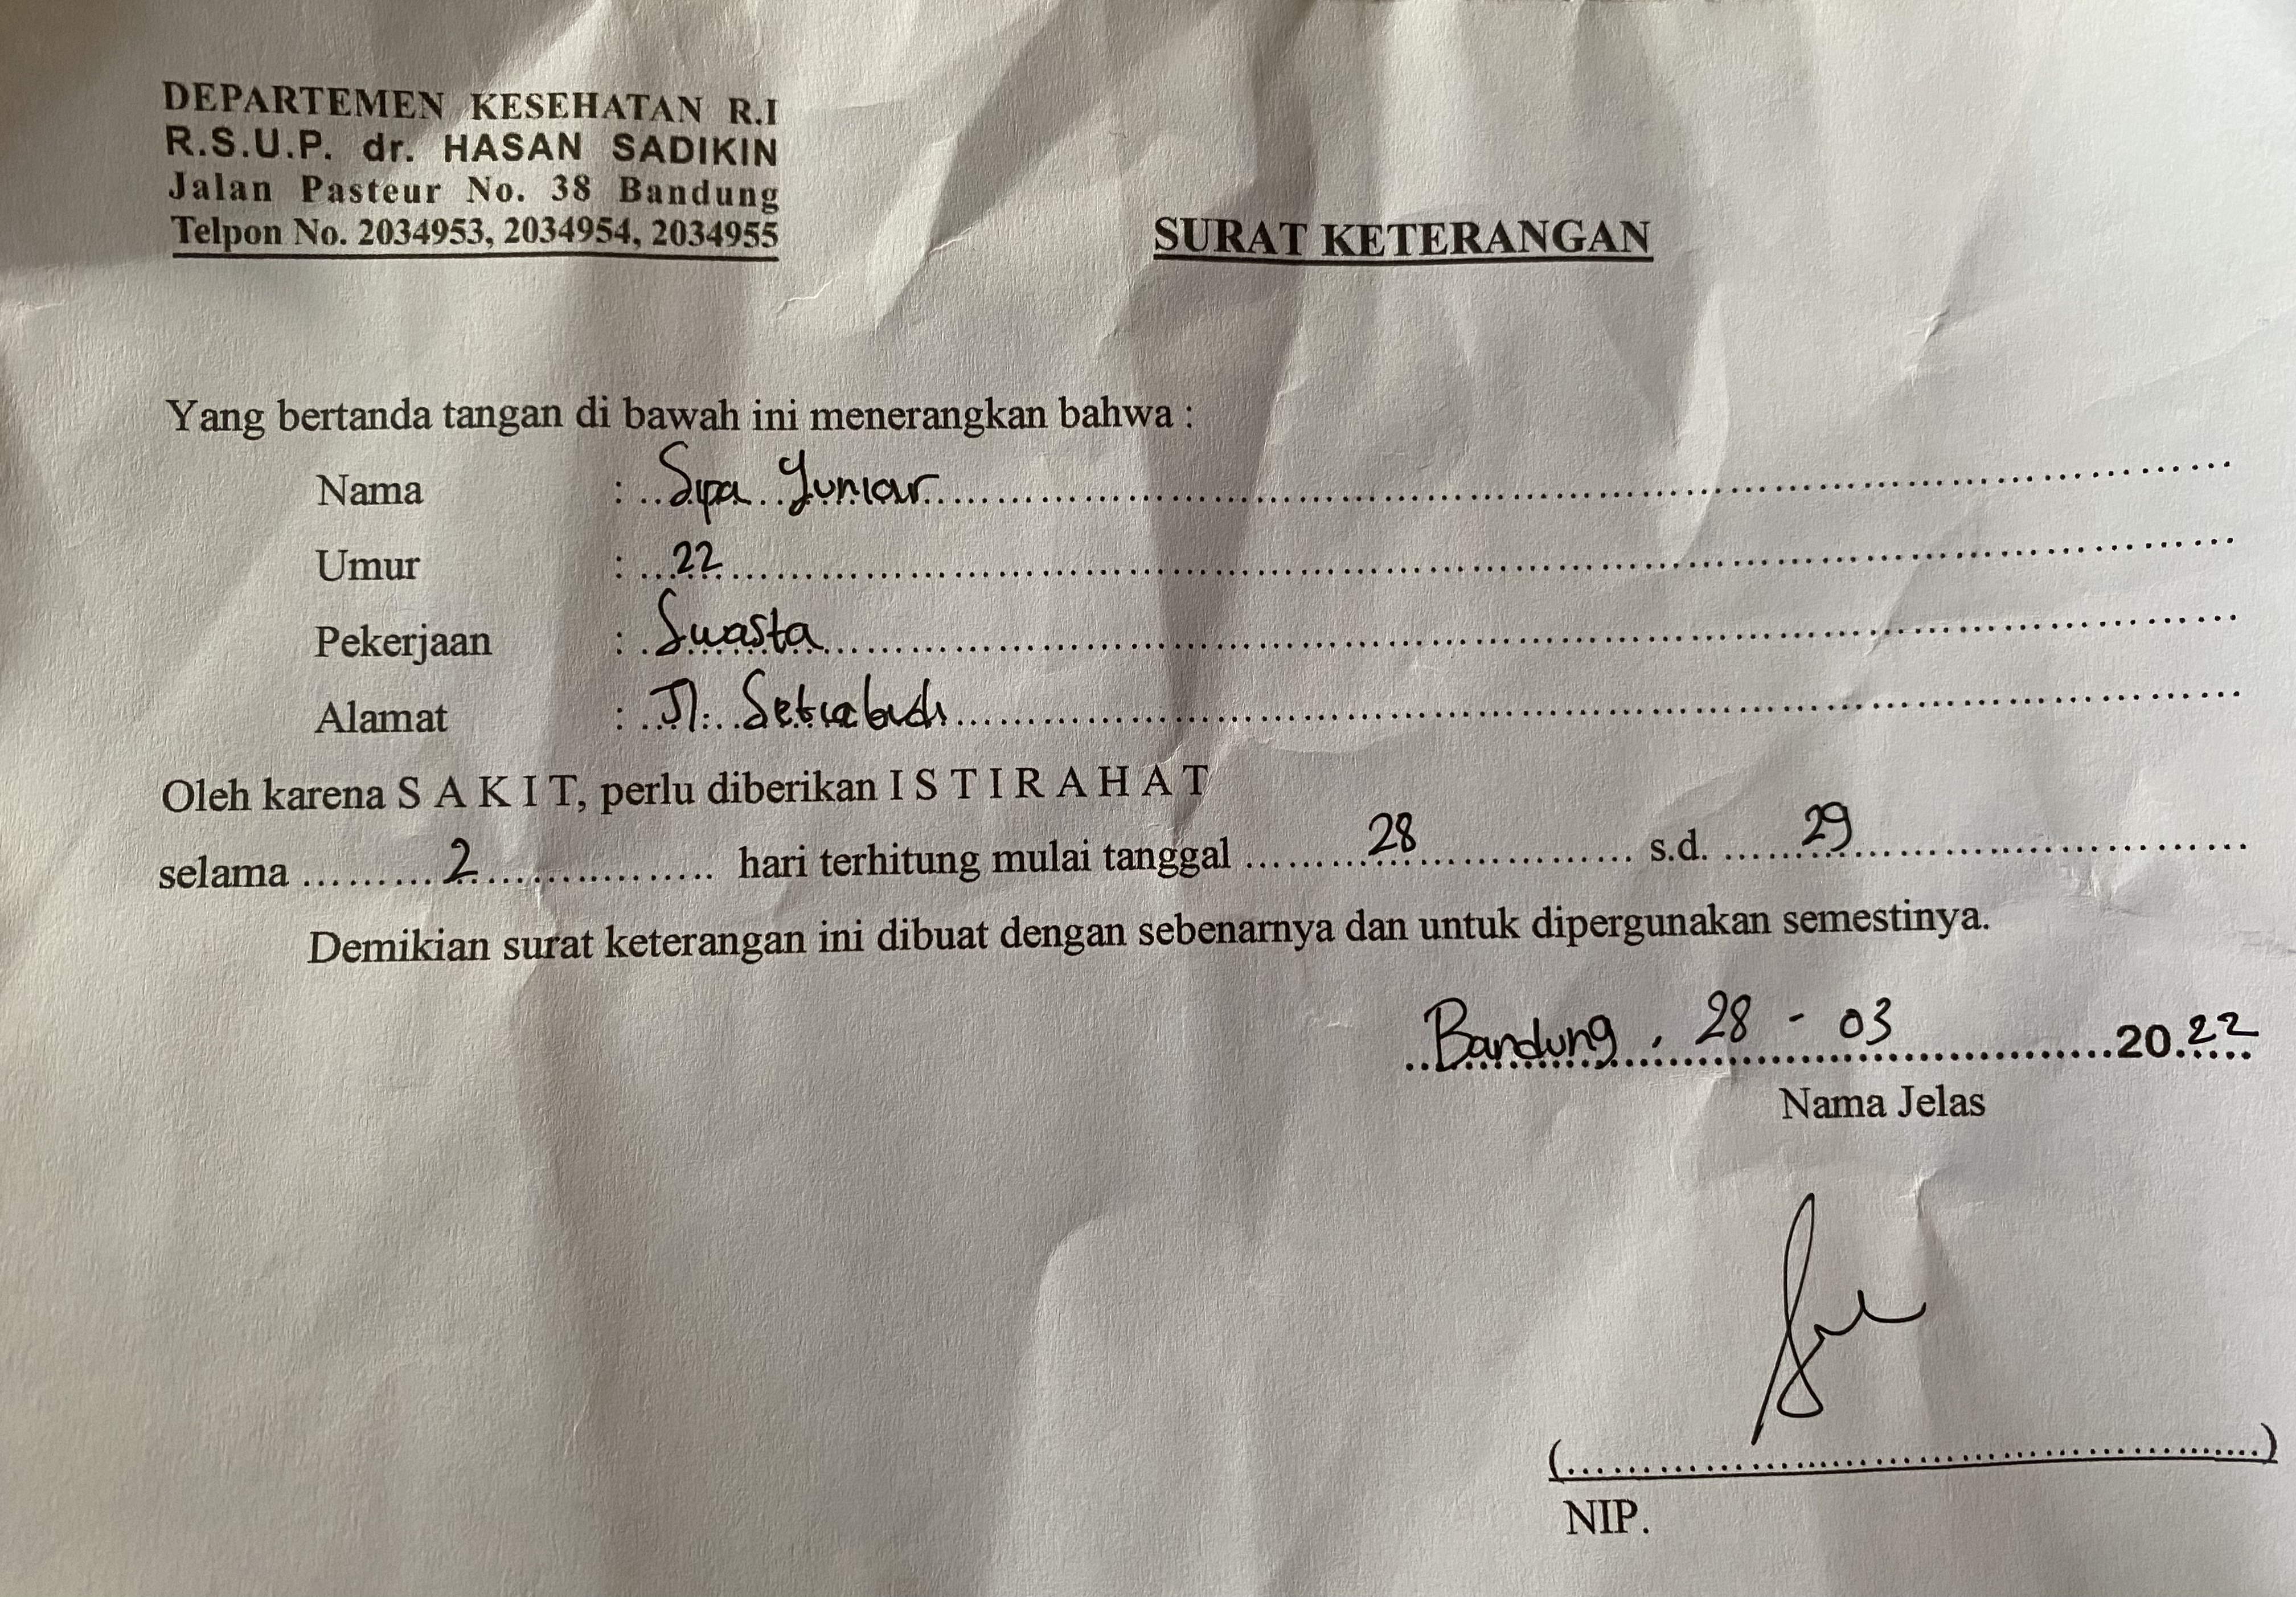 DEPARTEMEN KESEHATAN R.I
R.S.U.P. dr. HASAN SADIKIN
Jalan Pasteur No. 38 Bandung
Telpon No. 2034953, 2034954, 2034955
SURAT KETERANGAN
Yang bertanda tangan di bawah ini menerangkan bahwa :
Nama : Sipa Yuniar
Umur : 22
Pekerjaan : Swasta
Alamat : Jl. Setiabudi
Oleh karena S A K I T, perlu diberikan I S T I R A H A T
selama 2 hari terhitung mulai tanggal 28 s.d. 29
Demikian surat keterangan ini dibuat dengan sebenarnya dan untuk dipergunakan semestinya.
Bandung, 28 - 03 2022
Nama Jelas
(..........)
NIP.